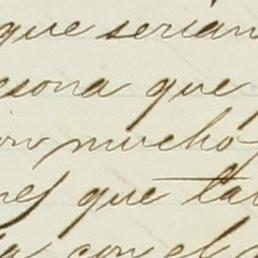 que serían
esona que
ion mucho
nes que ta
ia con el